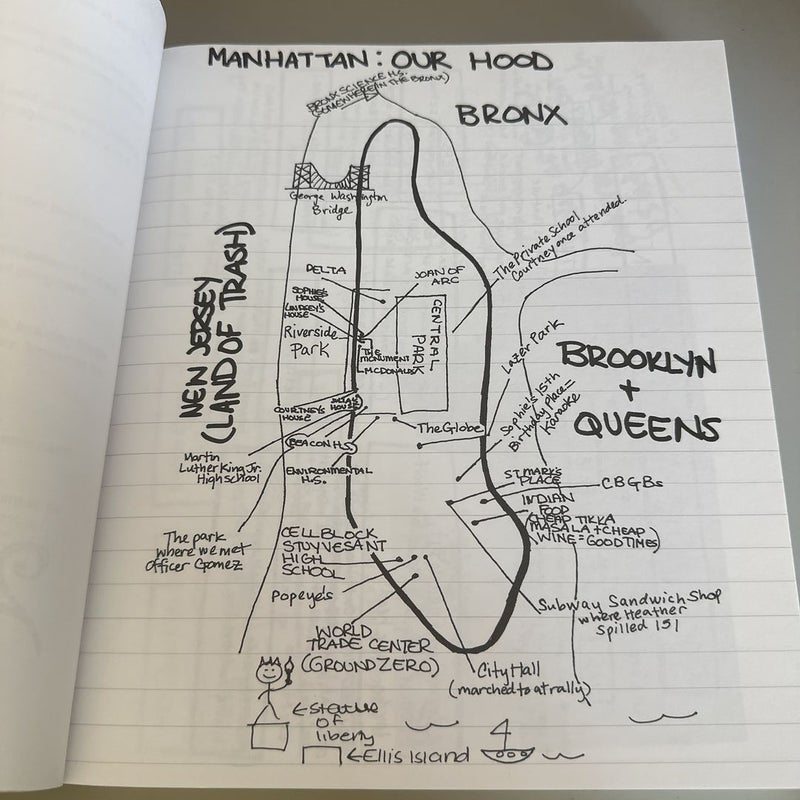 MANHATTAN: OUR HOOD
BRONX SCIENCE H.S.
(SOMEWHERE IN THE BRONX)
BRONX
George Washington
Bridge
The Private School
Courtney once attended.
NEW JERSEY
(LAND OF TRASH)
DELTA
JOAN OF
ARC
SOPHIE'S
HOUSE
LINDSEY'S
HOUSE
Riverside
Park
CENTRAL
PARK
THE
MONUMENT
MCDONALDS
Lazer Park
BROOKLYN
+
QUEENS
Sophie's 15th
Birthday place=
Karaoke
JULIA'S
HOUSE
COURTNEY'S
HOUSE
The Globe
BEACON H.S.
Martin
Luther King Jr.
High school
ENVIRONMENTAL
H.S.
ST. MARK'S
PLACE
CBGBs
INDIAN
FOOD
(CHEAP TIKKA
MASALA + CHEAP
WINE = GOOD TIMES)
The park
where we met
officer Gomez
CELLBLOCK
STUYVESANT
HIGH
SCHOOL
Popeye's
Subway Sandwich Shop
where Heather
Spilled 151
WORLD
TRADE CENTER
(GROUND ZERO)
City Hall
(marched to at rally)
←Statue
of
liberty
←Ellis Island